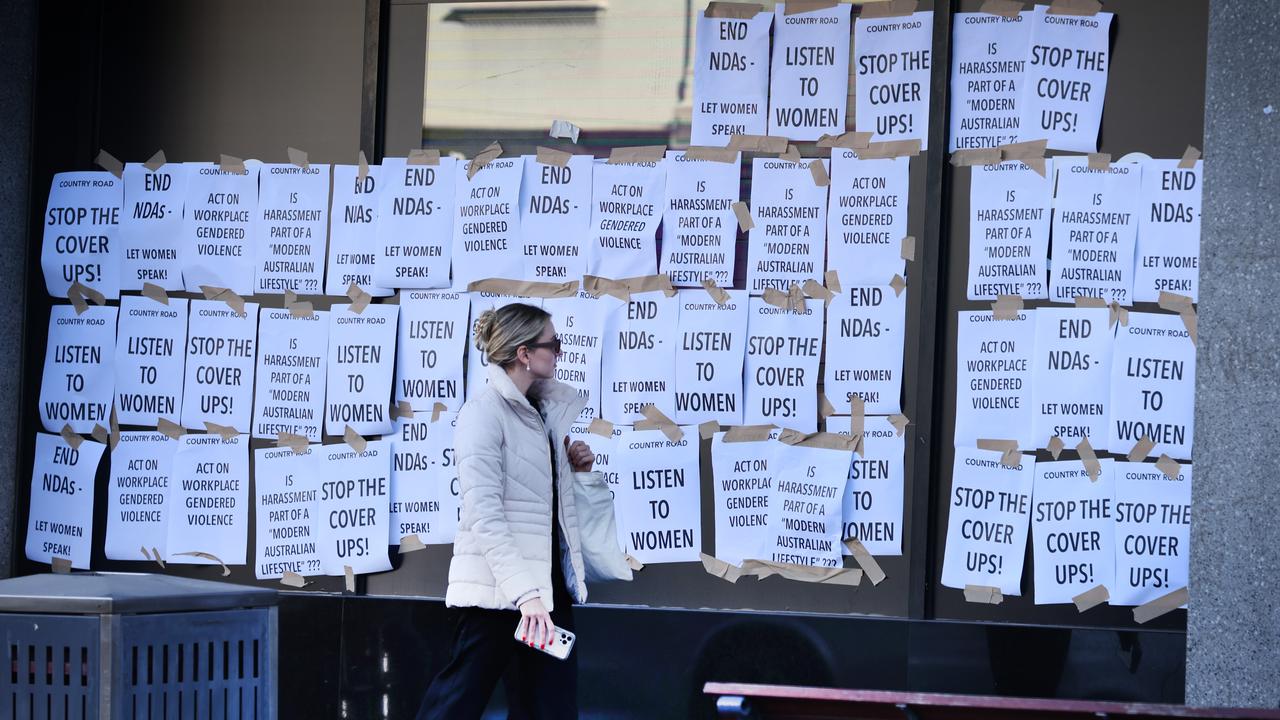 END
NDAs -
LET WOMEN
SPEAK!
COUNTRY ROAD
LISTEN
TO
WOMEN
COUNTRY ROAD
STOP THE
COVER
UPS!
COUNTRY ROAD
IS
HARASSMENT
PART OF A
"MODERN
AUSTRALIAN
LIFESTYLE" ???
COUNTRY ROAD
STOP THE
COVER
UPS!
COUNTRY ROAD
STOP THE
COVER
UPS!
END
NDAs -
LET WOMEN
SPEAK!
COUNTRY ROAD
ACT ON
WORKPLACE
GENDERED
VIOLENCE
COUNTRY ROAD
IS
HARASSMENT
PART OF A
"MODERN
AUSTRALIAN
LIFESTYLE" ???
END
NDAs
LET WOMEN
SPEAK!
END
NDAs -
LET WOMEN
SPEAK!
COUNTRY ROAD
ACT ON
WORKPLACE
GENDERED
VIOLENCE
END
NDAs -
LET WOMEN
SPEAK!
COUNTRY ROAD
ACT ON
WORKPLACE
GENDERED
VIOLENCE
IS
HARASSMENT
PART OF A
"MODERN
AUSTRALIAN
LIFESTYLE" ???
COUNTRY ROAD
IS
HARASSMENT
PART OF A
"MODERN
AUSTRALIAN
LIFESTYLE" ???
COUNTRY ROAD
ACT ON
WORKPLACE
GENDERED
VIOLENCE
COUNTRY ROAD
IS
HARASSMENT
PART OF A
"MODERN
AUSTRALIAN
LIFESTYLE" ???
COUNTRY ROAD
IS
HARASSMENT
PART OF A
"MODERN
AUSTRALIAN
LIFESTYLE" ???
END
NDAs -
LET WOMEN
SPEAK!
COUNTRY ROAD
LISTEN
TO
WOMEN
COUNTRY ROAD
LISTEN
TO
WOMEN
COUNTRY ROAD
STOP THE
COVER
UPS!
COUNTRY ROAD
IS
HARASSMENT
PART OF A
"MODERN
AUSTRALIAN
LIFESTYLE" ???
COUNTRY ROAD
LISTEN
TO
WOMEN
COUNTRY ROAD
LISTEN
TO
WOMEN
IS
HARASSMENT
PART OF A
"MODERN
AUSTRALIAN
END
NDAs -
LET WOMEN
SPEAK!
COUNTRY ROAD
LISTEN
TO
WOMEN
COUNTRY ROAD
STOP THE
COVER
UPS!
END
NDAs -
LET WOMEN
SPEAK!
COUNTRY ROAD
ACT ON
WORKPLACE
GENDERED
VIOLENCE
END
NDAs -
LET WOMEN
SPEAK!
COUNTRY ROAD
LISTEN
TO
WOMEN
END
NDAs -
LET WOMEN
SPEAK!
COUNTRY ROAD
ACT ON
WORKPLACE
GENDERED
VIOLENCE
COUNTRY ROAD
ACT ON
WORKPLACE
GENDERED
VIOLENCE
COUNTRY ROAD
IS
HARASSMENT
PART OF A
"MODERN
AUSTRALIAN
LIFESTYLE" ???
COUNTRY ROAD
STOP THE
COVER
UPS!
END
NDAs -
LET WOMEN
SPEAK!
COUNTRY ROAD
LISTEN
TO
WOMEN
COUNTRY ROAD
ACT ON
WORKPLACE
GENDERED
VIOLENCE
IS
HARASSMENT
PART OF A
"MODERN
AUSTRALIAN
LIFESTYLE" ???
COUNTRY ROAD
LISTEN
TO
WOMEN
COUNTRY ROAD
STOP THE
COVER
UPS!
COUNTRY ROAD
STOP THE
COVER
UPS!
COUNTRY ROAD
STOP THE
COVER
UPS!